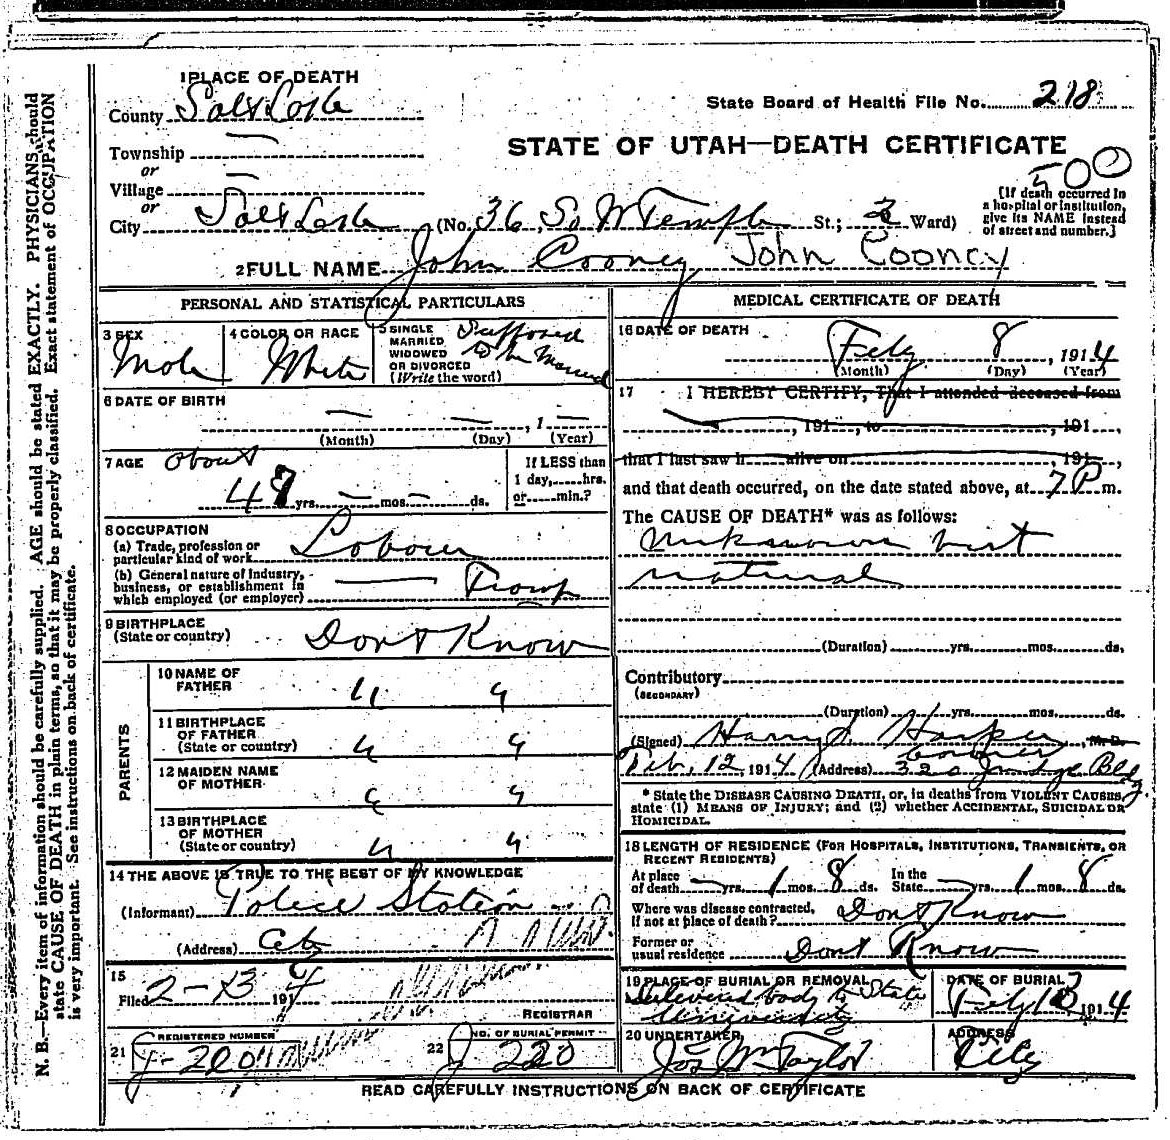 1 PLACE OF DEATH
County Salt Lake
State Board of Health File No. 218
Township —
or
Village —
or
City Salt Lake (No. 36, So W Temple St.; Ward)
STATE OF UTAH—DEATH CERTIFICATE
500
(If death occurred in
a hospital or institution,
give its NAME instead
of street and number.)
2 FULL NAME John Cooney John Cooney
PERSONAL AND STATISTICAL PARTICULARS
3 SEX
Male
4 COLOR OR RACE
White
5 SINGLE
MARRIED
WIDOWED
OR DIVORCED
(Write the word)
Supposed
to be Married
6 DATE OF BIRTH
— — , 1 —
(Month) (Day) (Year)
7 AGE about
yrs. — mos — ds.
If LESS than
1 day,......hrs.
or......min.?
8 OCCUPATION
(a) Trade, profession or
particular kind of work Labour
(b) General nature of industry,
business, or establishment in
which employed (or employer) — Tramp
9 BIRTHPLACE
(State or country) Dont Know
PARENTS
10 NAME OF
FATHER " "
11 BIRTHPLACE
OF FATHER
(State or country) " "
12 MAIDEN NAME
OF MOTHER " "
13 BIRTHPLACE
OF MOTHER
(State or country) " "
14 THE ABOVE IS TRUE TO THE BEST OF MY KNOWLEDGE
(Informant) Police Station
(Address) City
15
Filed 2-13 1914
REGISTRAR
REGISTERED NUMBER
21
NO. OF BURIAL PERMIT
22 J 220
MEDICAL CERTIFICATE OF DEATH
16 DATE OF DEATH
Feby 8, 1914
(Month) (Day) (Year)
17 I HEREBY CERTIFY, That I attended deceased from
, 191 , to , 191 ,
that I last saw h alive on , 191 ,
and that death occurred, on the date stated above, at 7 P m.
The CAUSE OF DEATH* was as follows:
unknown but
natural
(Duration) yrs. mos. ds.
Contributory
(SECONDARY)
(Duration) yrs. mos. ds.
(Signed) Harry S. Harper, M. D.
Coroner
Feb, 12, 1914 (Address) 320 Judge Bldg.
* State the DISEASE CAUSING DEATH, or, in deaths from VIOLENT CAUSES,
state (1) MEANS OF INJURY; and (2) whether ACCIDENTAL, SUICIDAL OR
HOMICIDAL.
18 LENGTH OF RESIDENCE (FOR HOSPITALS, INSTITUTIONS, TRANSIENTS, OR
RECENT RESIDENTS)
At place
of death — yrs. 1 mos. 8 ds.
In the
State — yrs. 1 mos. 8 ds.
Where was disease contracted,
if not at place of death? Dont Know
Former or
usual residence Dont Know
19 PLACE OF BURIAL OR REMOVAL
Delivered body to State
University
DATE OF BURIAL
Feby 1914
20 UNDERTAKER
Jos Wm Taylor
ADDRESS
City
READ CAREFULLY INSTRUCTIONS ON BACK OF CERTIFICATE
N. B.—Every item of information should be carefully supplied. AGE should be stated EXACTLY. PHYSICIANS should
state CAUSE OF DEATH in plain terms, so that it may be properly classified. Exact statement of OCCUPATION
is very important. See instructions on back of certificate.